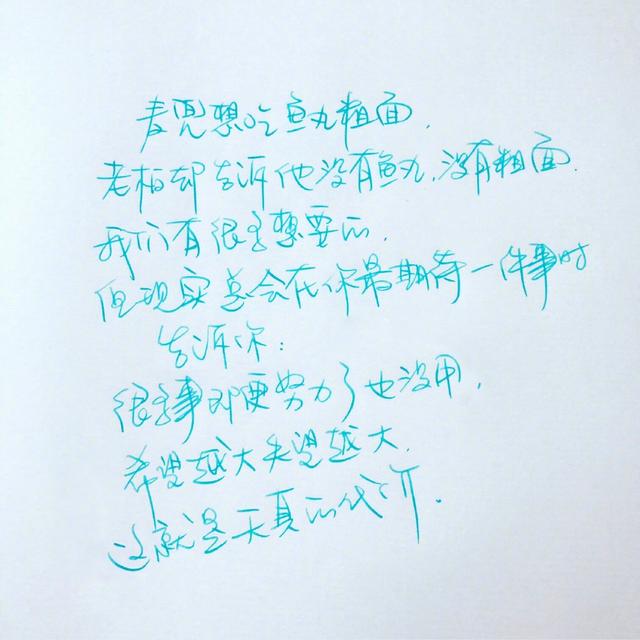 麦兜想吃鱼丸粗面，
老板却告诉他没有鱼丸，没有粗面。
我们有很多想要的，
但现实总会在你最期待一件事时
告诉你：
很多事即便努力了也没用，
希望越大失望越大，
这就是天真的代价。